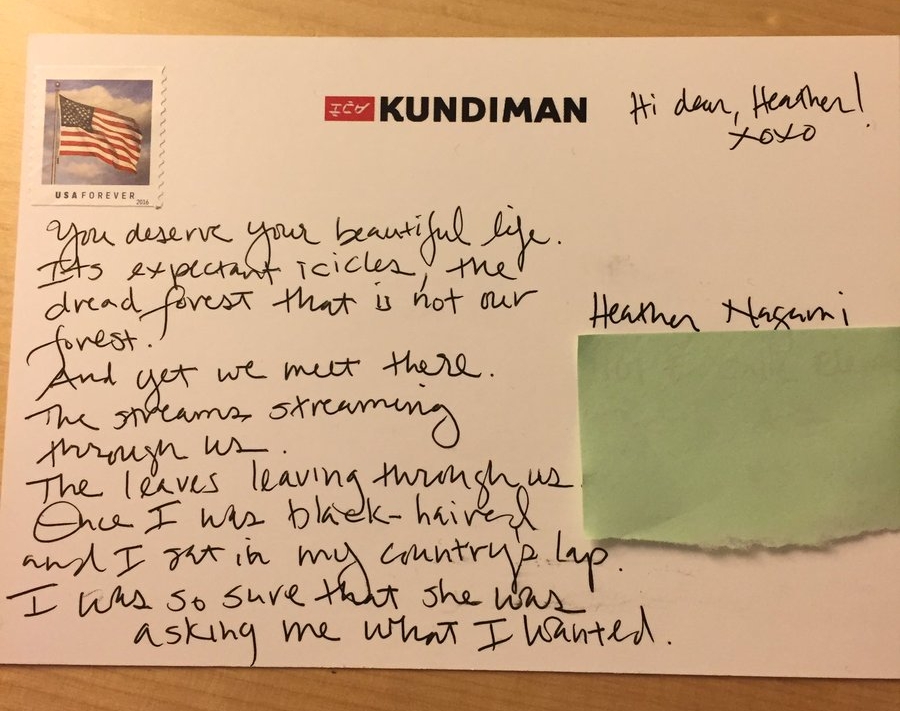 USA FOREVER
2016
KUNDIMAN
Hi dear, Heather!
xoxo
You deserve your beautiful life.
Its expectant icicles, the
dread forest that is not our
forest.
And yet we meet there.
The streams streaming
through us.
The leaves leaving through us.
Once I was black-haired
and I sat in my country's lap.
I was so sure that she was
asking me what I wanted.
Heather Nagami